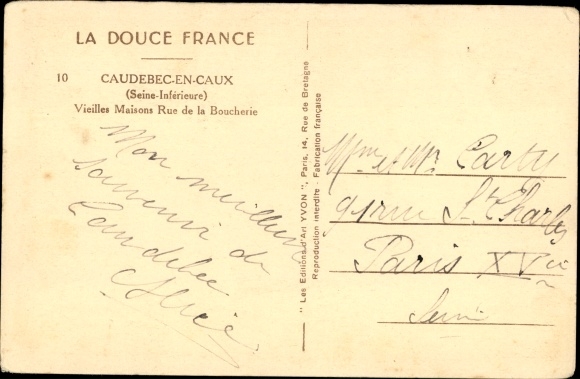 LA DOUCE FRANCE
10 CAUDEBEC-EN-CAUX
(Seine-Inférieure)
Vieilles Maisons Rue de la Boucherie
Mon meilleur
souvenir de
Caudebec
Alice
" Les Editions d'Art YVON ", Paris, 14, Rue de Bretagne
Reproduction interdite - Fabrication française
Mme et Mr Carty
91 rue St Charles
Paris XVe
Seine